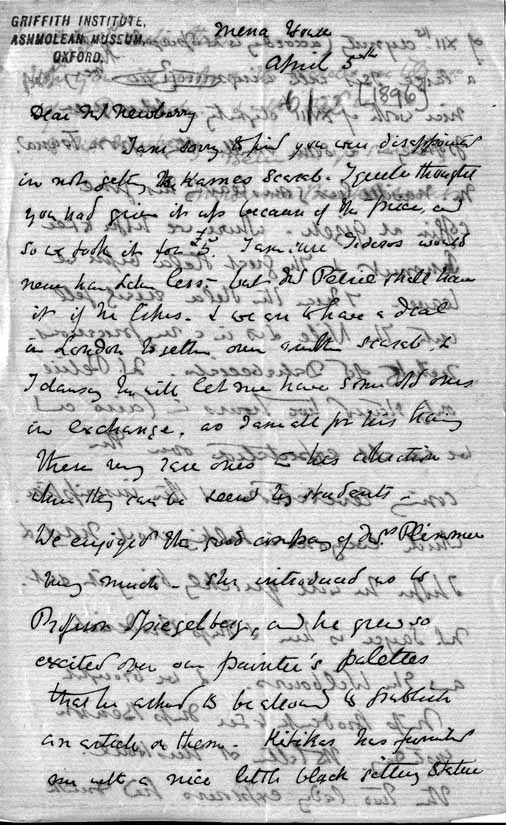 GRIFFITH INSTITUTE,
ASHMOLEAN MUSEUM,
OXFORD.
Mena House
April 5th
6/ [1896]
Dear Mr Newberry
I am sorry to find you were disappointed
in not getting the Kames scarab. I quite thought
you had given it up because of the price, and
so we took it for £5. I am sure Tideros would
never have taken less – but Mr Petrie shall have
it if he likes. & we are to have a deal
in London together over another scarab. &
I daresay he will let me have some old ones
in exchange, as I am all for his having
these very rare ones in his collection
where they can be seen by students –
We enjoyed the good company of Mrs Plimmer
very much – she introduced us to
Professor Spiegelberg, and he grew so
excited over our painter's palettes
that he asked to be allowed to publish
an article on them. Kitikas has furnished
me with a nice little black sitting statue